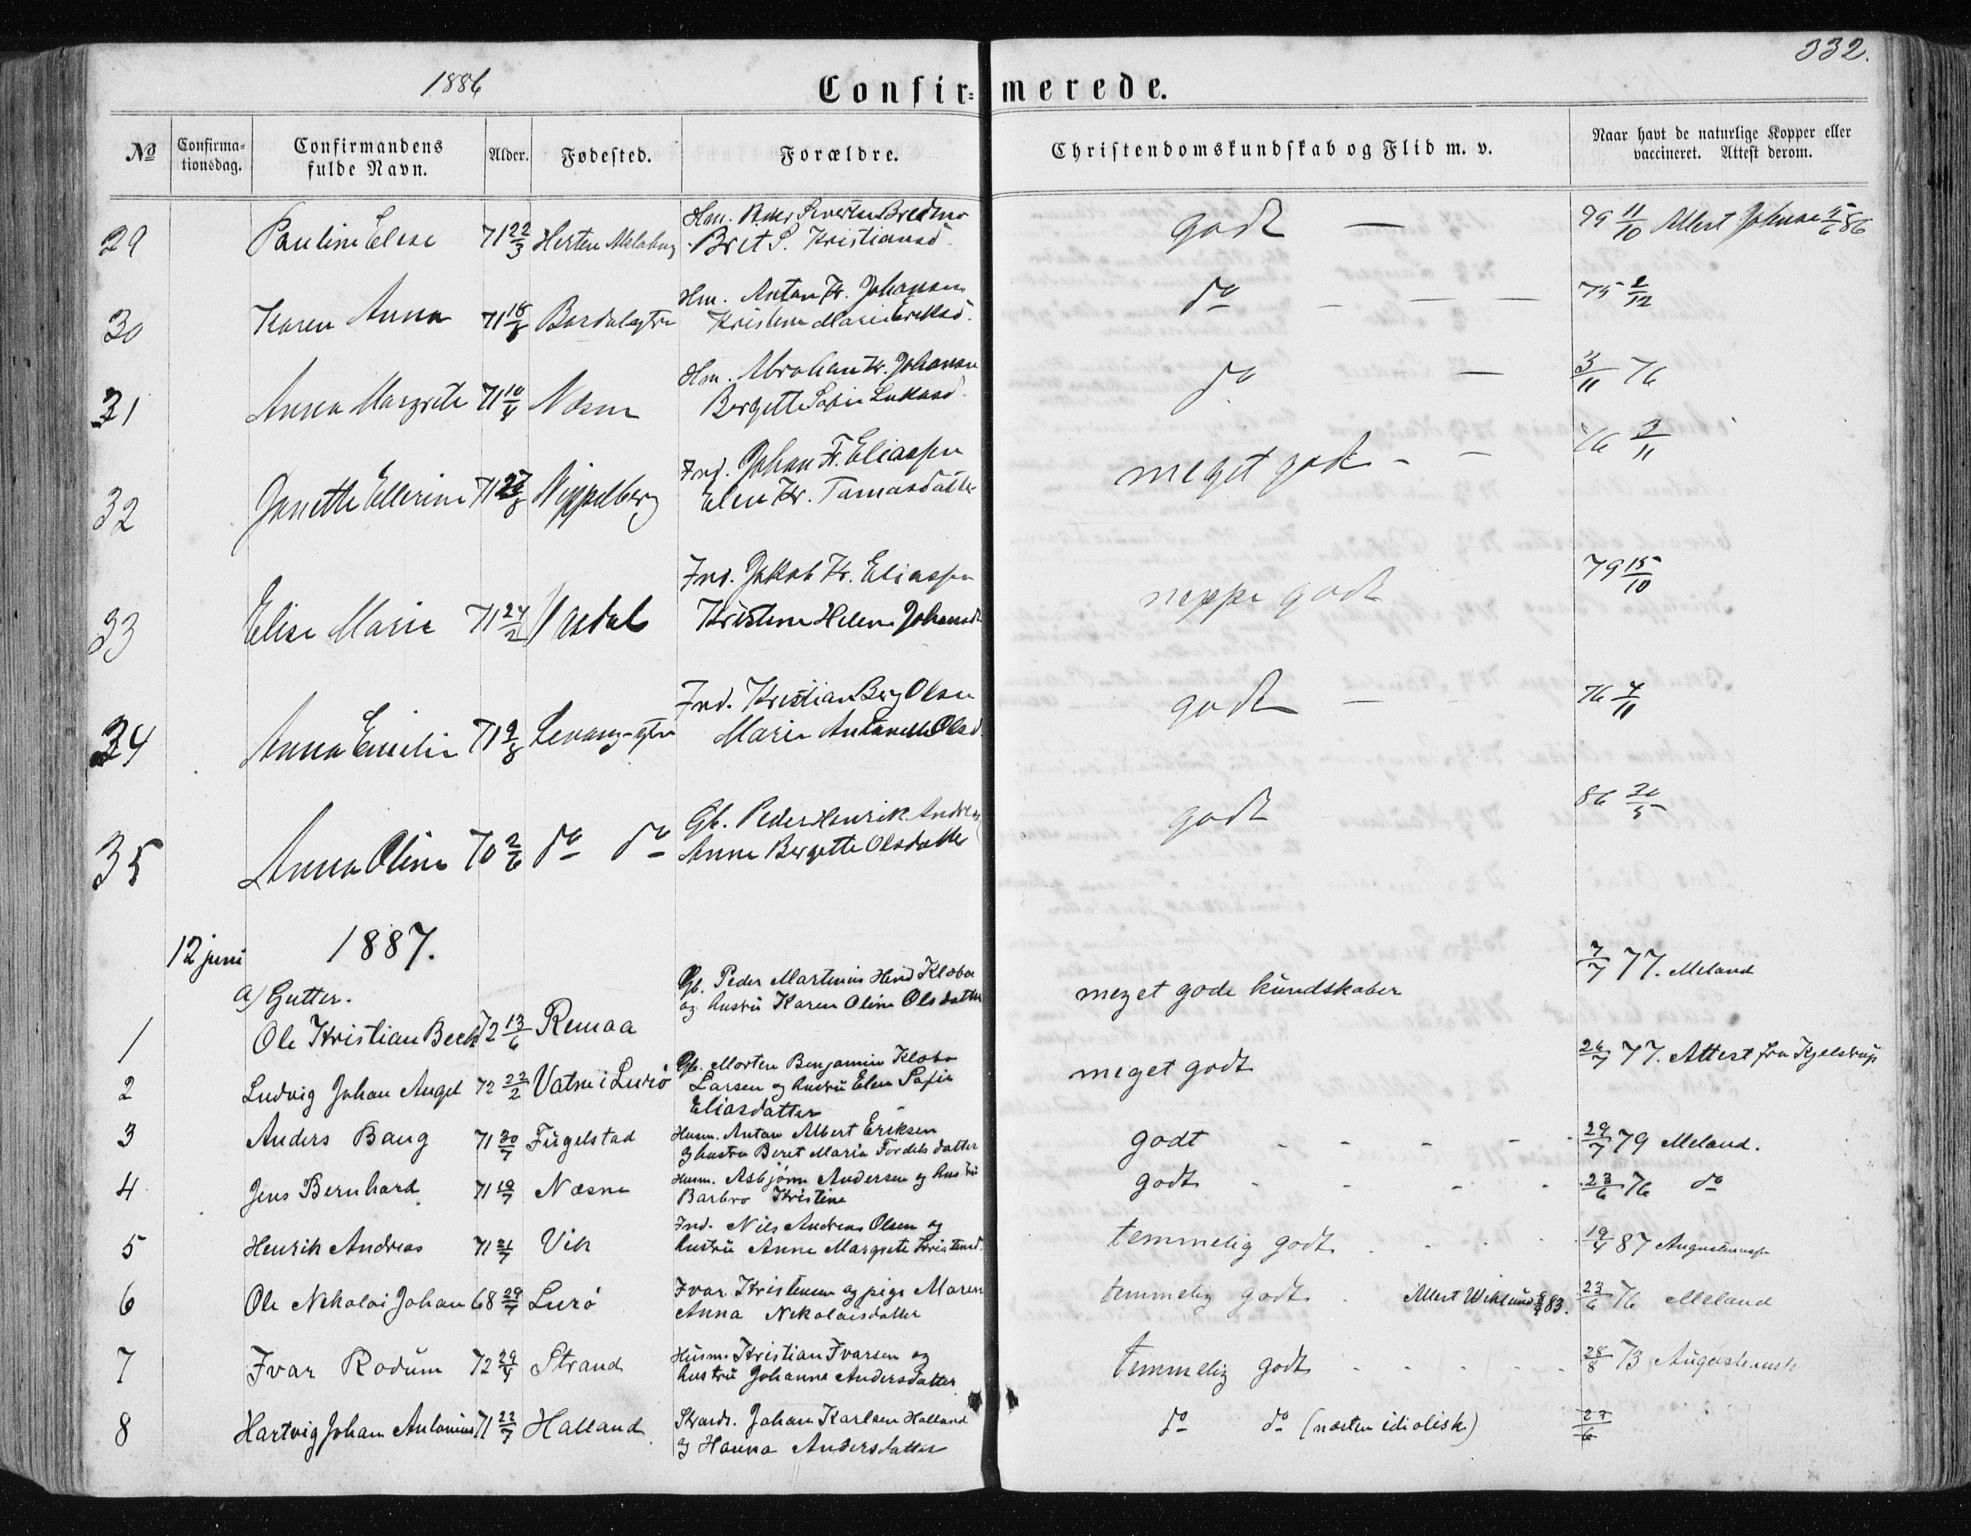 332.
1886
Confir= merede.
№
Confirma-
tionsdag.
Confirmandens
fulde Navn.
Alder.
Fødested.
Forældre.
Christendomskundskab og Flid m. v.
Naar havt de naturlige Kopper eller
vaccineret. Attest derom.
29 Pauline Elise 71 22/3 Herten
Hm. Peder Sivertsen Bredmo
Brit S. Kristiansd.
godt — 79 11/10 Attest Johnsen 86
30 Karen Anna 71 18/8 Bardalsgtr
Hm. Anton Kr. Johansen
Kristine Marie Eriksd.
do — — — 75 2/12
31 Anna Margrete 71 10/4 Næsne
Hm. Abraham Kr. Johansen
Bergette Sofie Lukasd.
do — 3/11 76
32 Janette Ellerine 71 27/8 Nippelberg
Ind. Johan Fr. Eliassen
Elen Kr. Tomasdatter
meget godt - - 76 3/11
33 Elise Marie 71 24/2
Ind. Jakob Kr. Eliassen
Kristine Helene Johansd
neppe godt 79 15/10
34 Anna Emilie 71 9/8 Levang-gtr
Ind. Kristian Berg Olsen
Marie Antonette Olsd.
godt — 76 7/11
35 Anna Oline 70 2/6 do do
Gb. Peder Henrik Andreas
Anne Bergette Olsdatter
godt 86 20/5
12 juni 1887.
a) Gutter.
1 Ole Kristian Bech 72 13/6 Remaa
Gb. Peder Martinus Hind Klobo
og hustru Karen Oline Olsdatter
meget gode kundskaber 7/7 77. Meland
2 Ludvig Johan Angel 72 22/2 Vatne i Lurø
Gb. Morten Benjamin Klobo
Larsen og hustru Elen Sofie
Eliasdatter
meget godt 26/7 77. Attest fra Kjelstrup
3 Anders Baug 71 30/7 Fugelstad
Husm. Antan Albert Eriksen
og hustru Beret Maria Fordelsdatter
godt - - - - - 29/7 79 Meland.
4 Jens Bernhard 71 19/7 Næsne
Husm. Asbjørn Andersen og hustru
Barbro Kristine
godt - - - - 23/6 76 do
5 Henrik Andreas 71 21/7 Vik
Ind. Nils Andreas Olsen og
hustru Anne Margrete Kristensd.
temmelig godt . . . . 19/4 87 Augustinussen
6 Ole Nikolai Johan 68 29/7 Lurø
Ivar Kristensen og pige Maren
Anna Nikolaisdatter
temmelig godt . Attest Wiklund 83. 23/6 76 Meland
7 Ivar Rodum 72 29/4 Strand
Husm. Kristian Ivarsen og
hustru Johanne Andersdatter
temmelig godt - - - - - 28/8 73
8 Hartvig Johan Antonius 71 22/7 Halland
Strands. Johan Karlsen Halland
og Hanna Andersdatter
do do (næsten idiotisk) 27/6